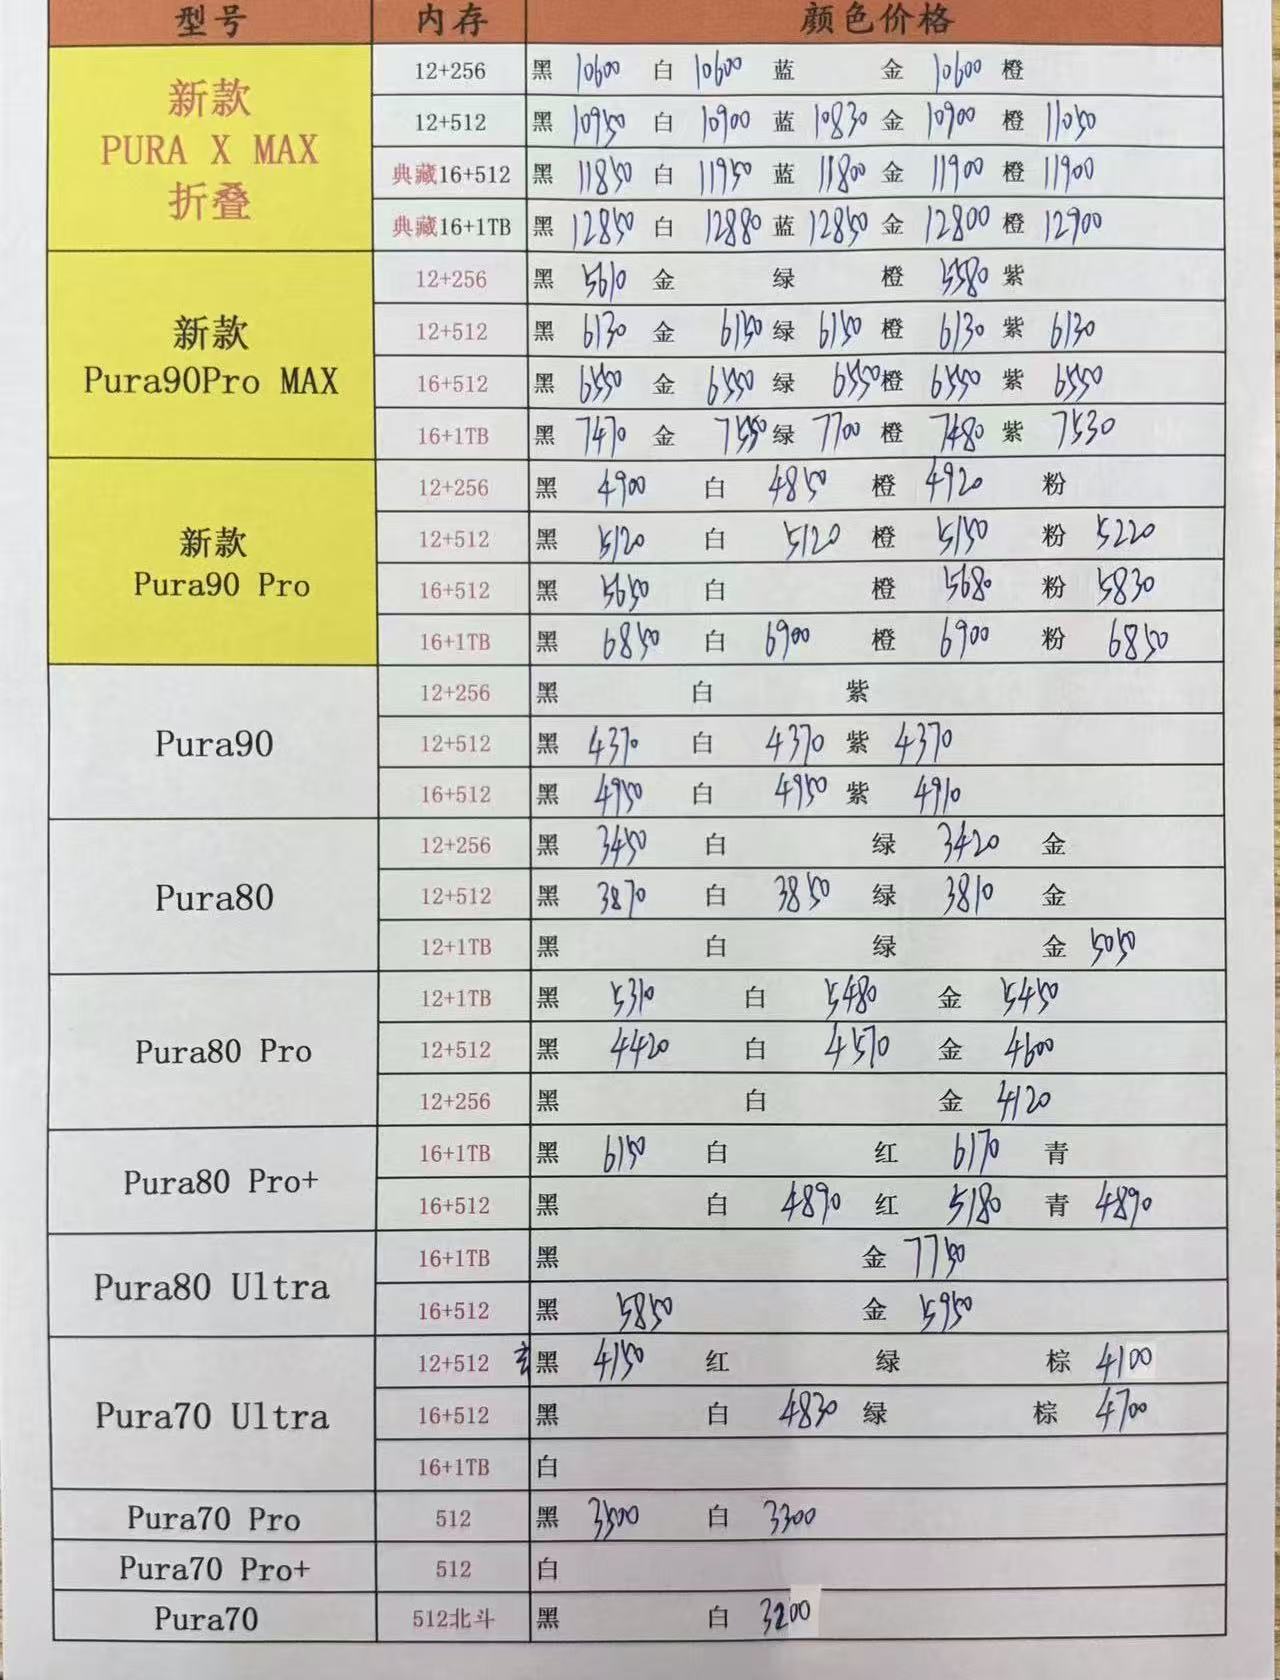 型号 内存 颜色价格
新款 PURA X MAX 折叠
12+256 黑 10600 白 10600 蓝 金 10600 橙
12+512 黑 10950 白 10900 蓝 10830 金 10900 橙 11050
典藏16+512 黑 11850 白 11950 蓝 11800 金 11900 橙 11900
典藏16+1TB 黑 12850 白 12880 蓝 12850 金 12800 橙 12900
新款 Pura90Pro MAX
12+256 黑 5610 金 绿 橙 5580 紫
12+512 黑 6130 金 6150 绿 6150 橙 6130 紫 6130
16+512 黑 6550 金 6550 绿 6550 橙 6550 紫 6550
16+1TB 黑 7470 金 7550 绿 7700 橙 7480 紫 7530
新款 Pura90 Pro
12+256 黑 4900 白 4850 橙 4920 粉
12+512 黑 5120 白 5120 橙 5150 粉 5220
16+512 黑 5650 白 橙 5680 粉 5830
16+1TB 黑 6850 白 6900 橙 6900 粉 6850
Pura90
12+256 黑 白 紫
12+512 黑 4370 白 4370 紫 4370
16+512 黑 4950 白 4950 紫 4910
Pura80
12+256 黑 3450 白 绿 3420 金
12+512 黑 3870 白 3850 绿 3810 金
12+1TB 黑 白 绿 金 5050
Pura80 Pro
12+1TB 黑 5310 白 5480 金 5450
12+512 黑 4420 白 4570 金 4600
12+256 黑 白 金 4120
Pura80 Pro+
16+1TB 黑 6150 白 红 6170 青
16+512 黑 白 4890 红 5180 青 4890
Pura80 Ultra
16+1TB 黑 金 7750
16+512 黑 5850 金 5950
Pura70 Ultra
12+512 玄黑 4150 红 绿 棕 4100
16+512 黑 白 4830 绿 棕 4700
16+1TB 白
Pura70 Pro 512 黑 3500 白 3300
Pura70 Pro+ 512 白
Pura70 512北斗 黑 白 3200